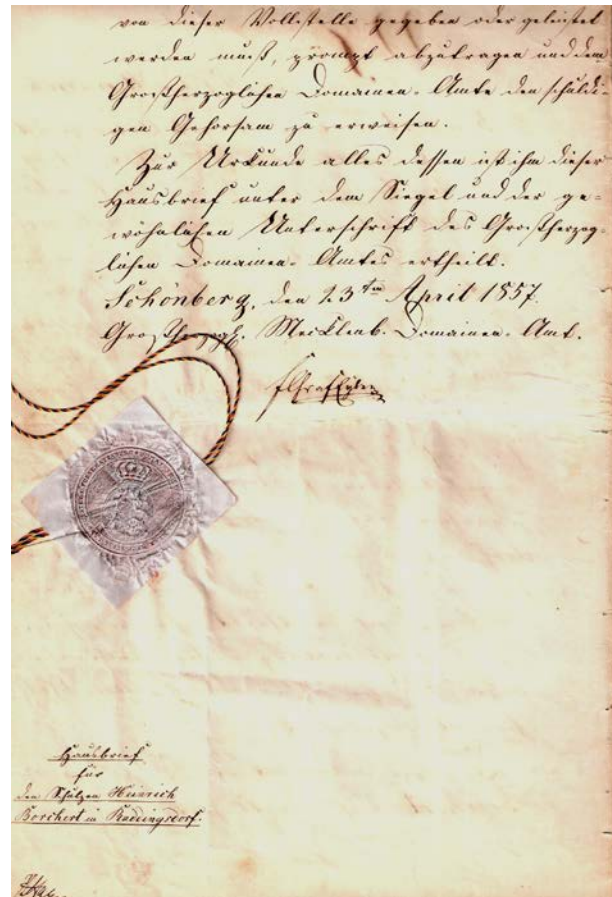 von dieser Vollstelle gegeben oder geleistet
werden muß, prompt abzutragen und dem
Großherzoglichen Domainen-Amte den schuldi-
gen Gehorsam zu erweisen.
Zur Urkunde alles dessen ist ihm dieser
Hausbrief unter dem Siegel und der ge-
wöhnlichen Unterschrift des Großherzog-
lichen Domainen-Amtes ertheilt.
Schönberg, den 23ten April 1857.
Großherzogl. Mecklenb. Domainen-Amt.
Hausbrief
für
den Schulzen Heinrich
Borchert in Raddingsdorf.